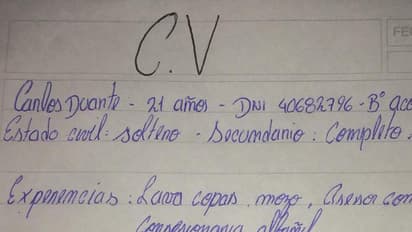 FE
C.V
Carlos Duarte - 21 años - DNI 40682796 - B°
Estado civil: soltero - Secundario: Completo.
Experiencias: Lava copas, mozo, Asesor com
concesionaria, albañil